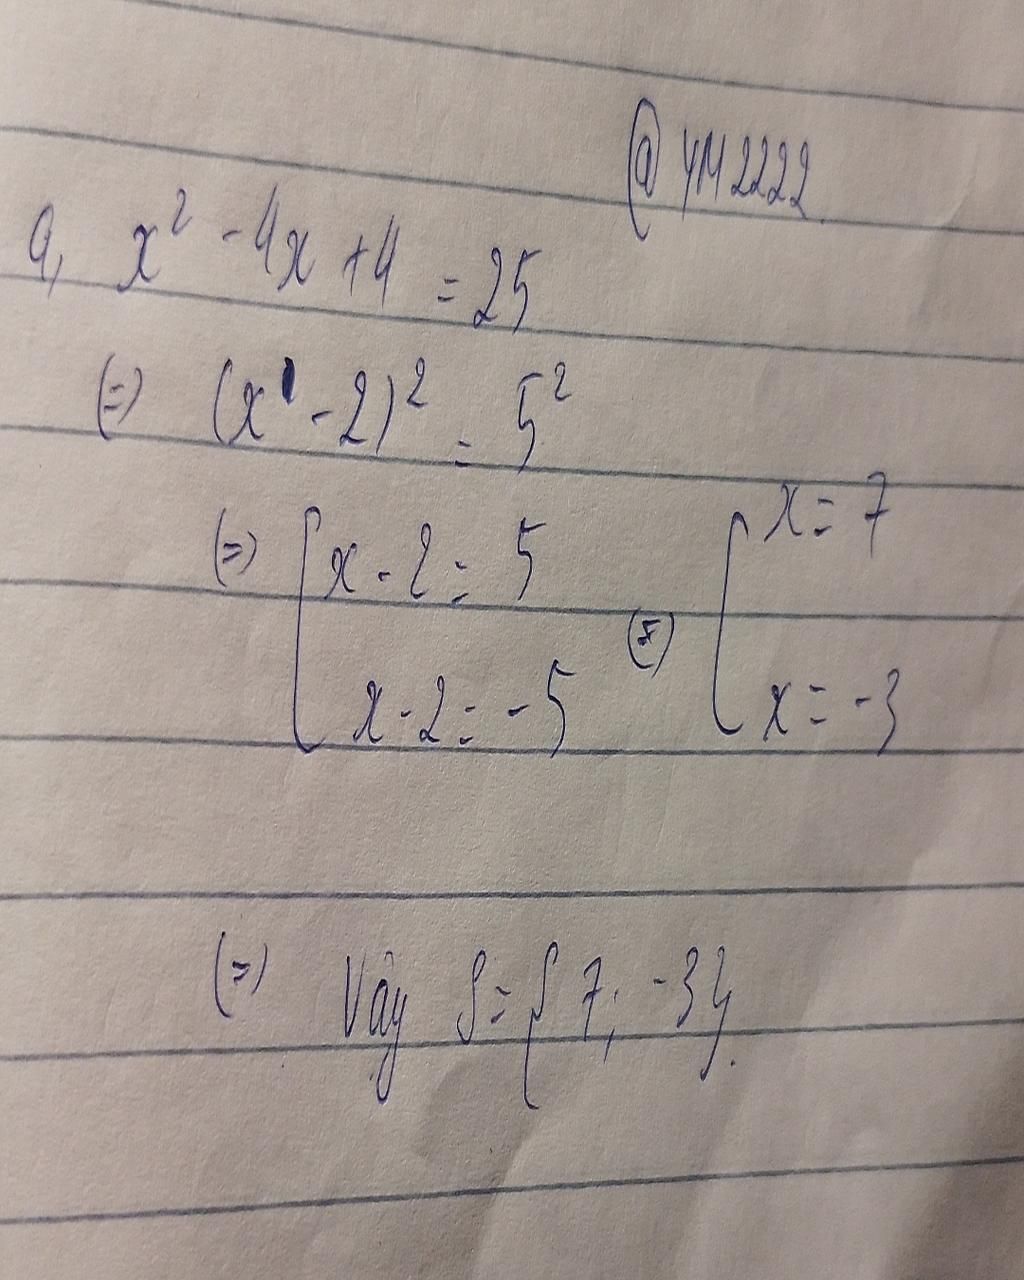 @YM2222
a, x² - 4x + 4 = 25
(=) (x - 2)² = 5²
(=) [ x - 2 = 5 (=) [ x = 7
x - 2 = -5 x = -3
(=) Vậy S = { 7; -3}.